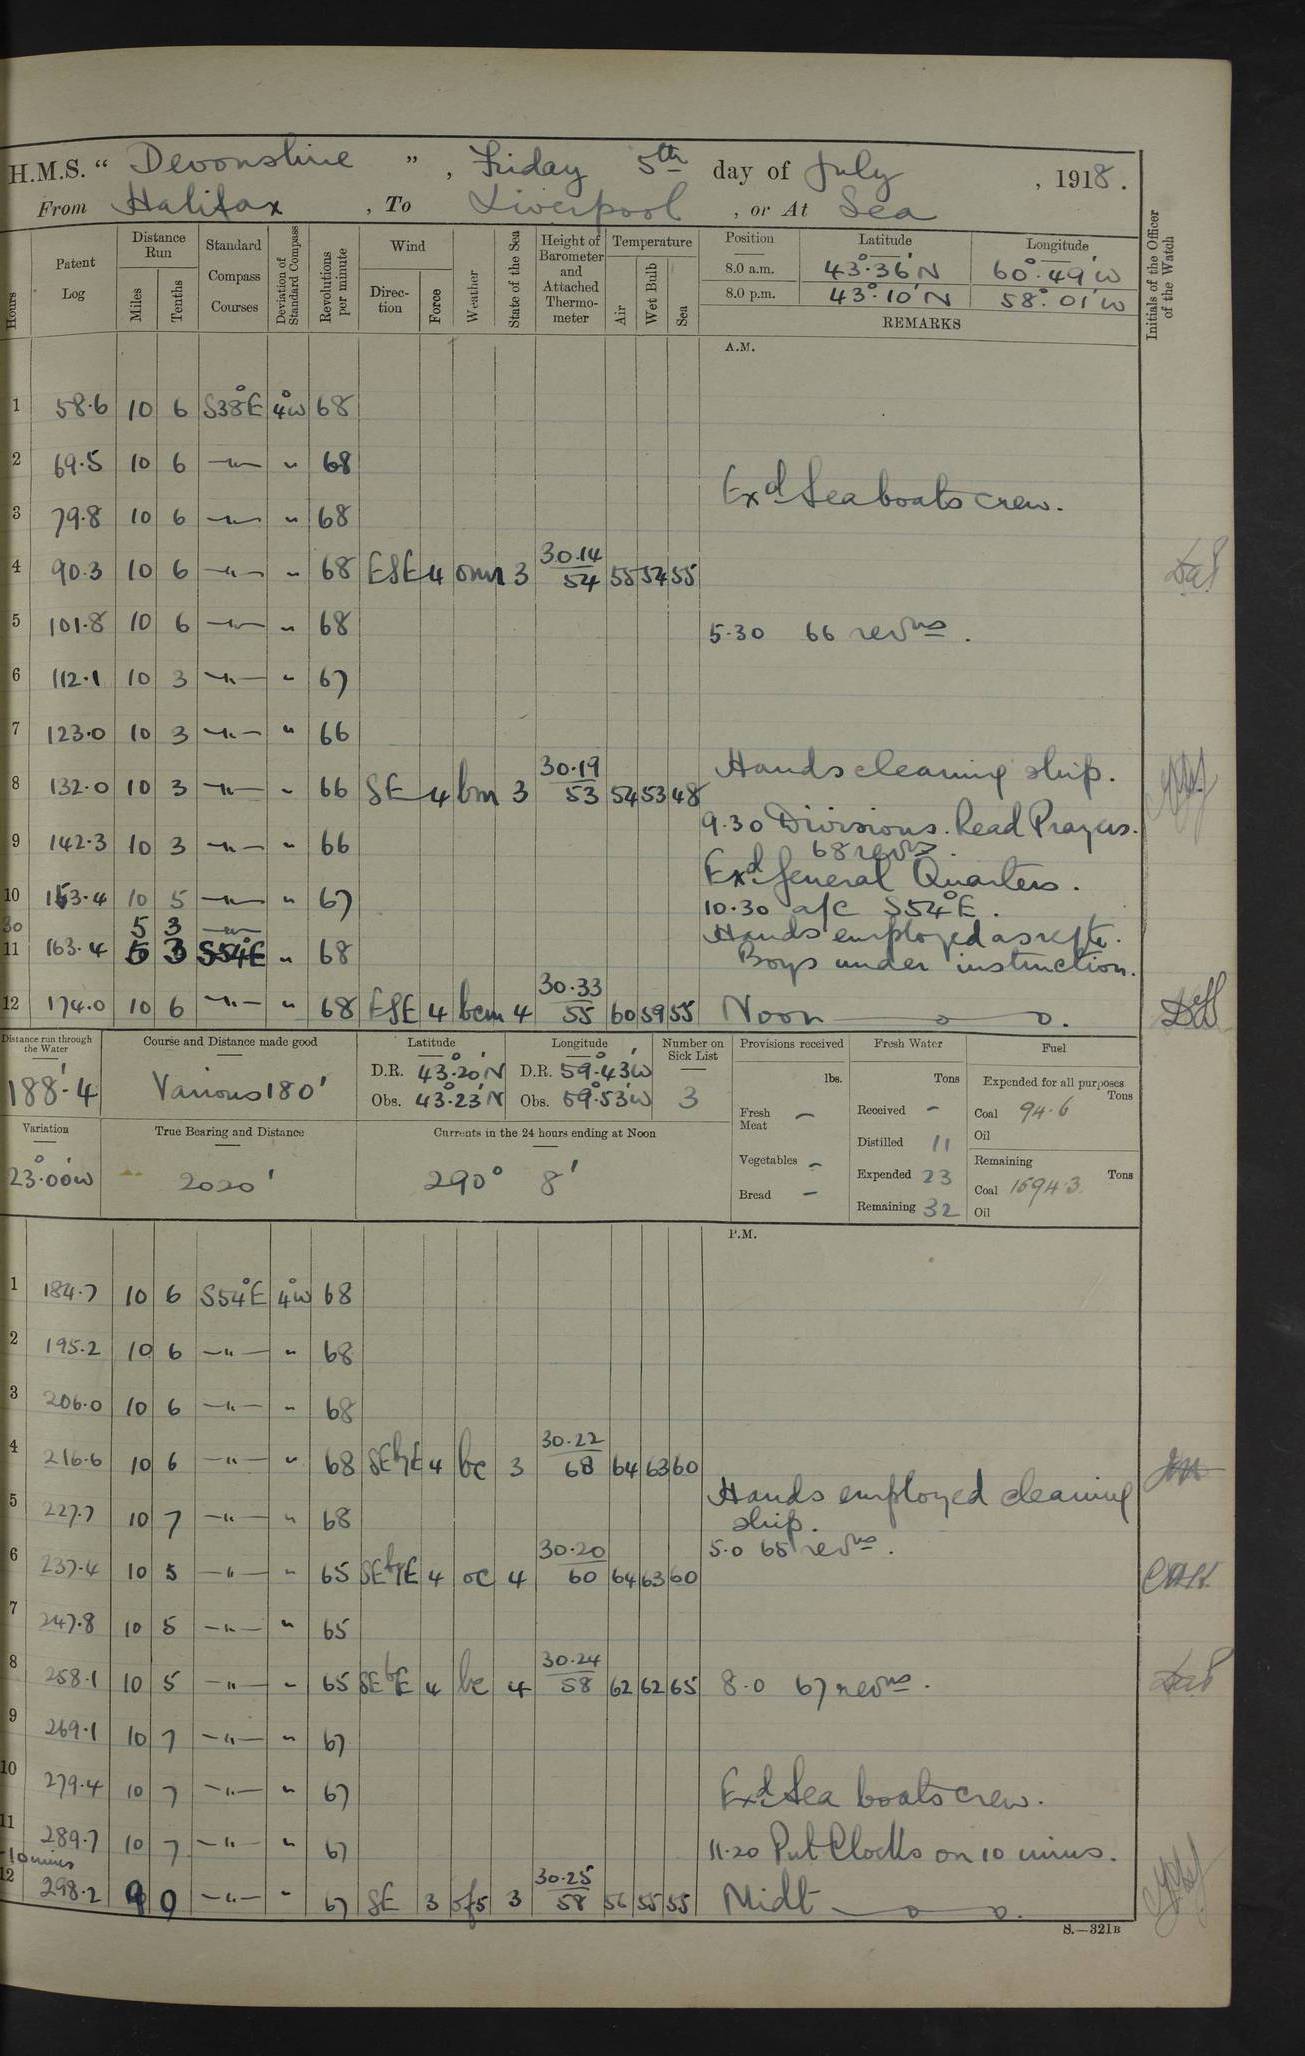 H.M.S. “ Devonshire ” , Friday 5th day of July , 1918.
From Halifax , To Liverpool , or At Sea
Hours
Patent Log
Distance Run
Miles
Tenths
Standard Compass Courses
Deviation of Standard Compass
Revolutions per minute
Wind
Direction
Force
Weather
State of the Sea
Height of Barometer and Attached Thermometer
Temperature
Air
Wet Bulb
Sea
Position Latitude Longitude
8.0 a.m. 43°·36′N 60°·49′W
8.0 p.m. 43°·10′N 58°·01′W
REMARKS
Initials of the Officer of the Watch
A.M.
1 58·6 10 6 S38°E 4°W 68
2 69·5 10 6 —"— " 68
Exd Sea boats crew.
3 79·8 10 6 —"— " 68
4 90·3 10 6 —"— " 68 ESE 4 omr 3 30·14 54 55 54 55
5 101·8 10 6 —"— " 68 5·30 66 revns.
6 112·1 10 3 —"— " 67
7 123·0 10 3 —"— " 66
Hands cleaning ship.
8 132·0 10 3 —"— " 66 SE 4 bm 3 30·19 53 54 53 48
9·30 Divisions. Read Prayers.
9 142·3 10 3 —"— " 66 68 revns.
Exd General Quarters.
10 153·4 10 5 —"— " 67 10·30 a/c S54°E.
30 5 3 —"—
Hands employed as reqte.
11 163·4 5 3 S54°E " 68 Boys under instruction.
12 174·0 10 6 —"— " 68 ESE 4 bcm 4 30·33 55 60 59 55 Noon
Distance run through the Water
188′·4
Course and Distance made good
Various 180′
Latitude
D.R. 43°·20′N
Obs. 43°·23′N
Longitude
D.R. 59°·43′W
Obs. 59°·53′W
Number on Sick List
3
Variation
23°·00′W
True Bearing and Distance
2020′
Currents in the 24 hours ending at Noon
290° 8′
Provisions received
lbs.
Fresh Meat —
Vegetables —
Bread —
Fresh Water
Tons
Received —
Distilled 11
Expended 23
Remaining 32
Fuel
Expended for all purposes
Tons
Coal 94·6
Oil
Remaining
Tons
Coal 1594·3
Oil
P.M.
1 184·7 10 6 S54°E 4°W 68
2 195·2 10 6 —"— " 68
3 206·0 10 6 —"— " 68
4 216·6 10 6 —"— " 68 SEbyE 4 bc 3 30·22 68 64 63 60
Hands employed cleaning
5 227·7 10 7 —"— " 68 ship.
5·0 65 revns.
6 237·4 10 5 —"— " 65 SEbyE 4 oc 4 30·20 60 64 63 60
7 247·8 10 5 —"— " 65
8 258·1 10 5 —"— " 65 SEbE 4 bc 4 30·24 58 62 62 65 8·0 67 revns.
9 269·1 10 7 —"— " 67
10 279·4 10 7 —"— " 67 Exd Sea boats crew.
11 289·7 10 7 —"— " 67 11·20 Put Clocks on 10 mins.
-10 mins
12 298·2 9 9 —"— " 67 SE 3 3 30·25 58 56 55 55 Midt
S.—321B